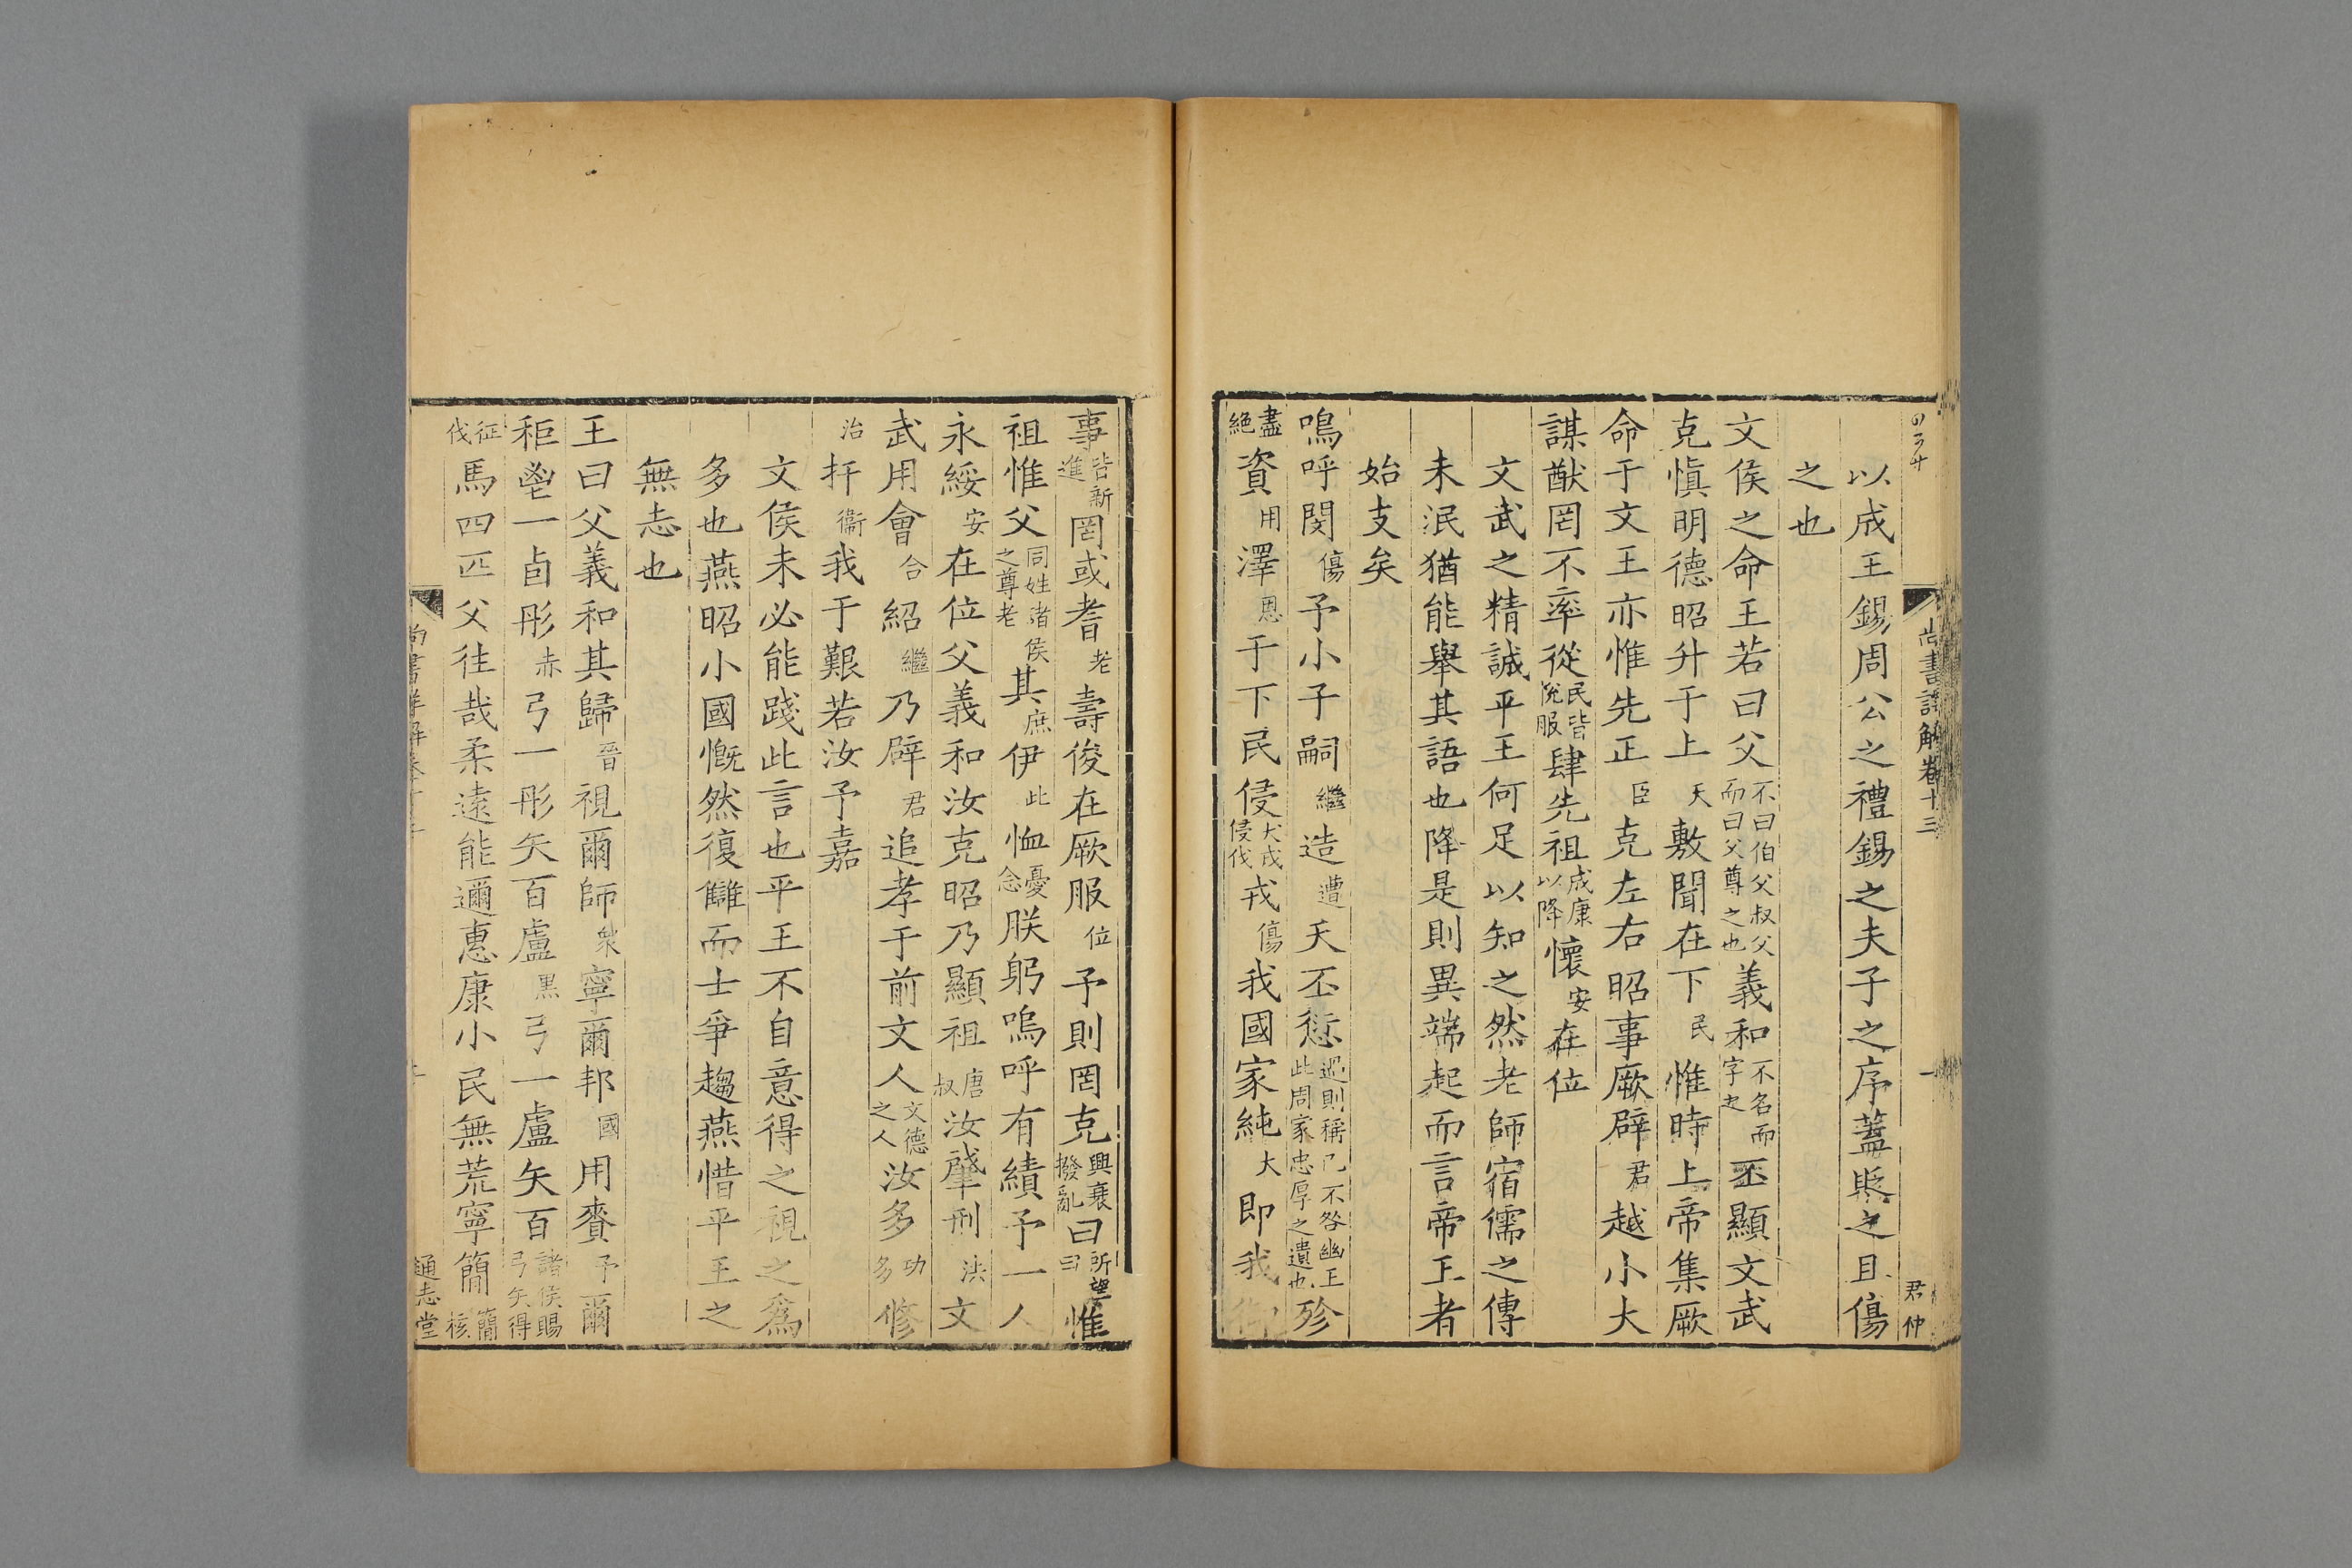 尚書詳解卷十三 一 君仲
以成王錫周公之禮錫之夫子之序蓋貶之且傷
之也
文侯之命王若曰父不曰伯父叔父而曰父尊之也義和不名而字之丕顯文武
克愼明德昭升于上天敷聞在下民惟時上帝集厥
命于文王亦惟先正臣克左右昭事厥辟君越小大
謀猷罔不率從民皆悅服肆先祖成康以降懷安在位
文武之精誠平王何足以知之然老師宿儒之傳
未泯猶能舉其語也降是則異端起而言帝王者
始支矣
嗚呼閔傷予小子嗣繼造遭天丕愆過則稱己不咎幽王此周家忠厚之遺也殄
盡絕資用澤恩于下民侵犬戎侵伐戎傷我國家純大即我御
事皆新進罔或耆老壽俊在厥服位予則罔克興衰撥亂曰所望曰惟
祖惟父同姓諸侯之尊老其庶伊此恤憂念朕躬嗚呼有績予一人
永綏安在位父義和汝克昭乃顯祖唐叔汝肇刑法文
武用會合紹繼乃辟君追孝于前文人文德之人汝多功多修
治扞衞我于艱若汝予嘉
文侯未必能踐此言也平王不自意得之視之爲
多也燕昭小國慨然復讎而士爭趨燕惜平王之
無志也
王曰父義和其歸晉視爾師衆寧爾邦國用賚予爾
秬鬯一卣彤赤弓一彤矢百盧黑弓一盧矢百諸侯賜弓矢得
征伐馬四匹父往哉柔遠能邇惠康小民無荒寧簡簡核
尚書詳解卷十三 通志堂